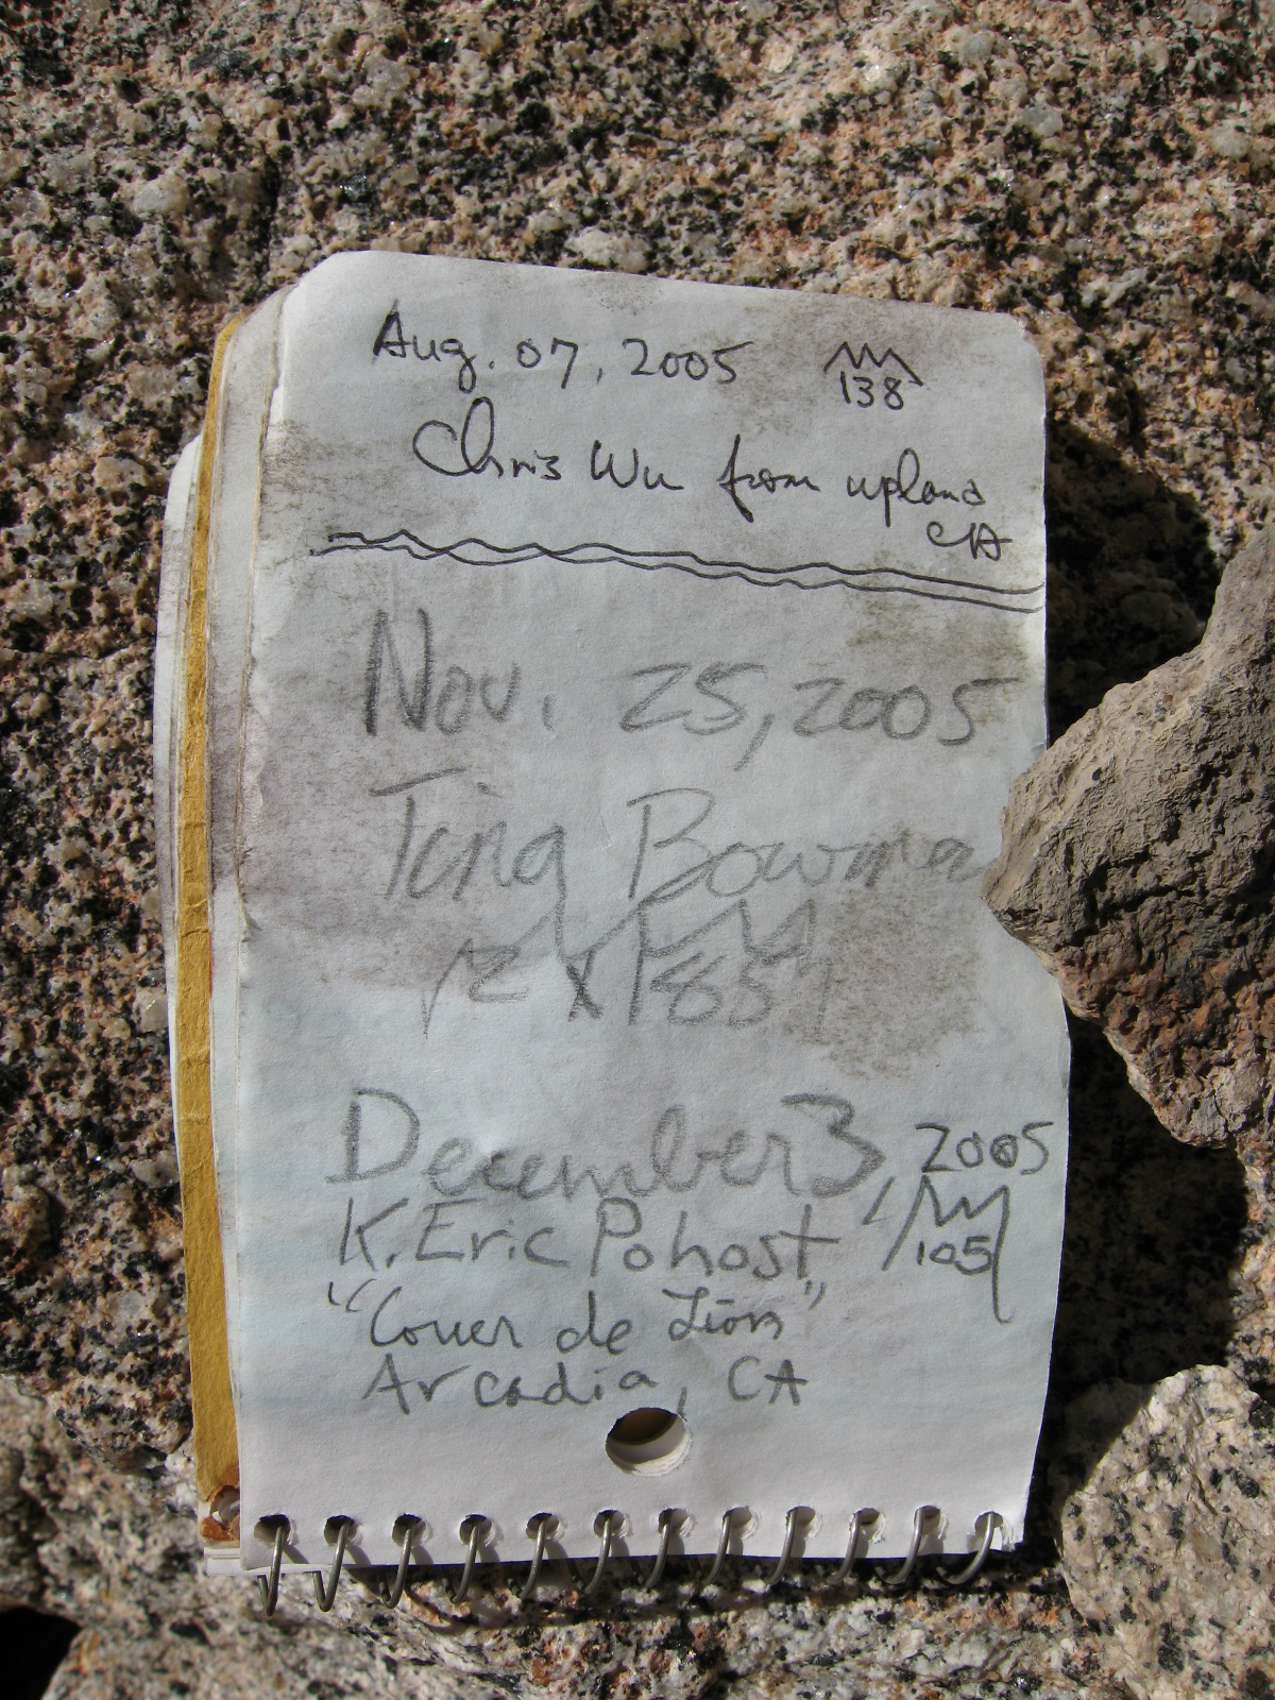 Aug. 07, 2005 138
Chris Wu from upland
CA
Nov. 25, 2005
Tina Bowman
December 3, 2005
K. Eric Pohost 105
"Couer de Lion"
Arcadia, CA